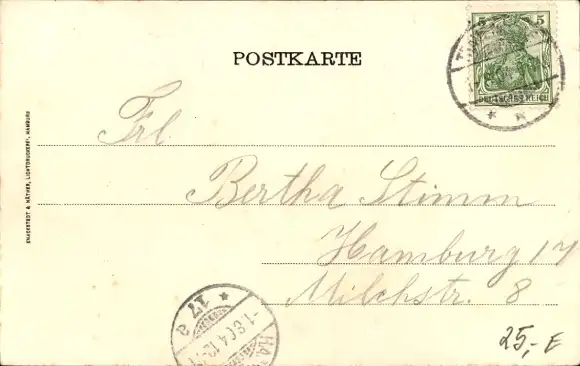 POSTKARTE
5 5
DEUTSCHES REICH
Frl.
Bertha Stimm
Hamburg 17
Milchstr. 8
KNACKSTEDT & NÄTHER, LICHTDRUCKEREI, HAMBURG
* 17 a
HA
25,- E